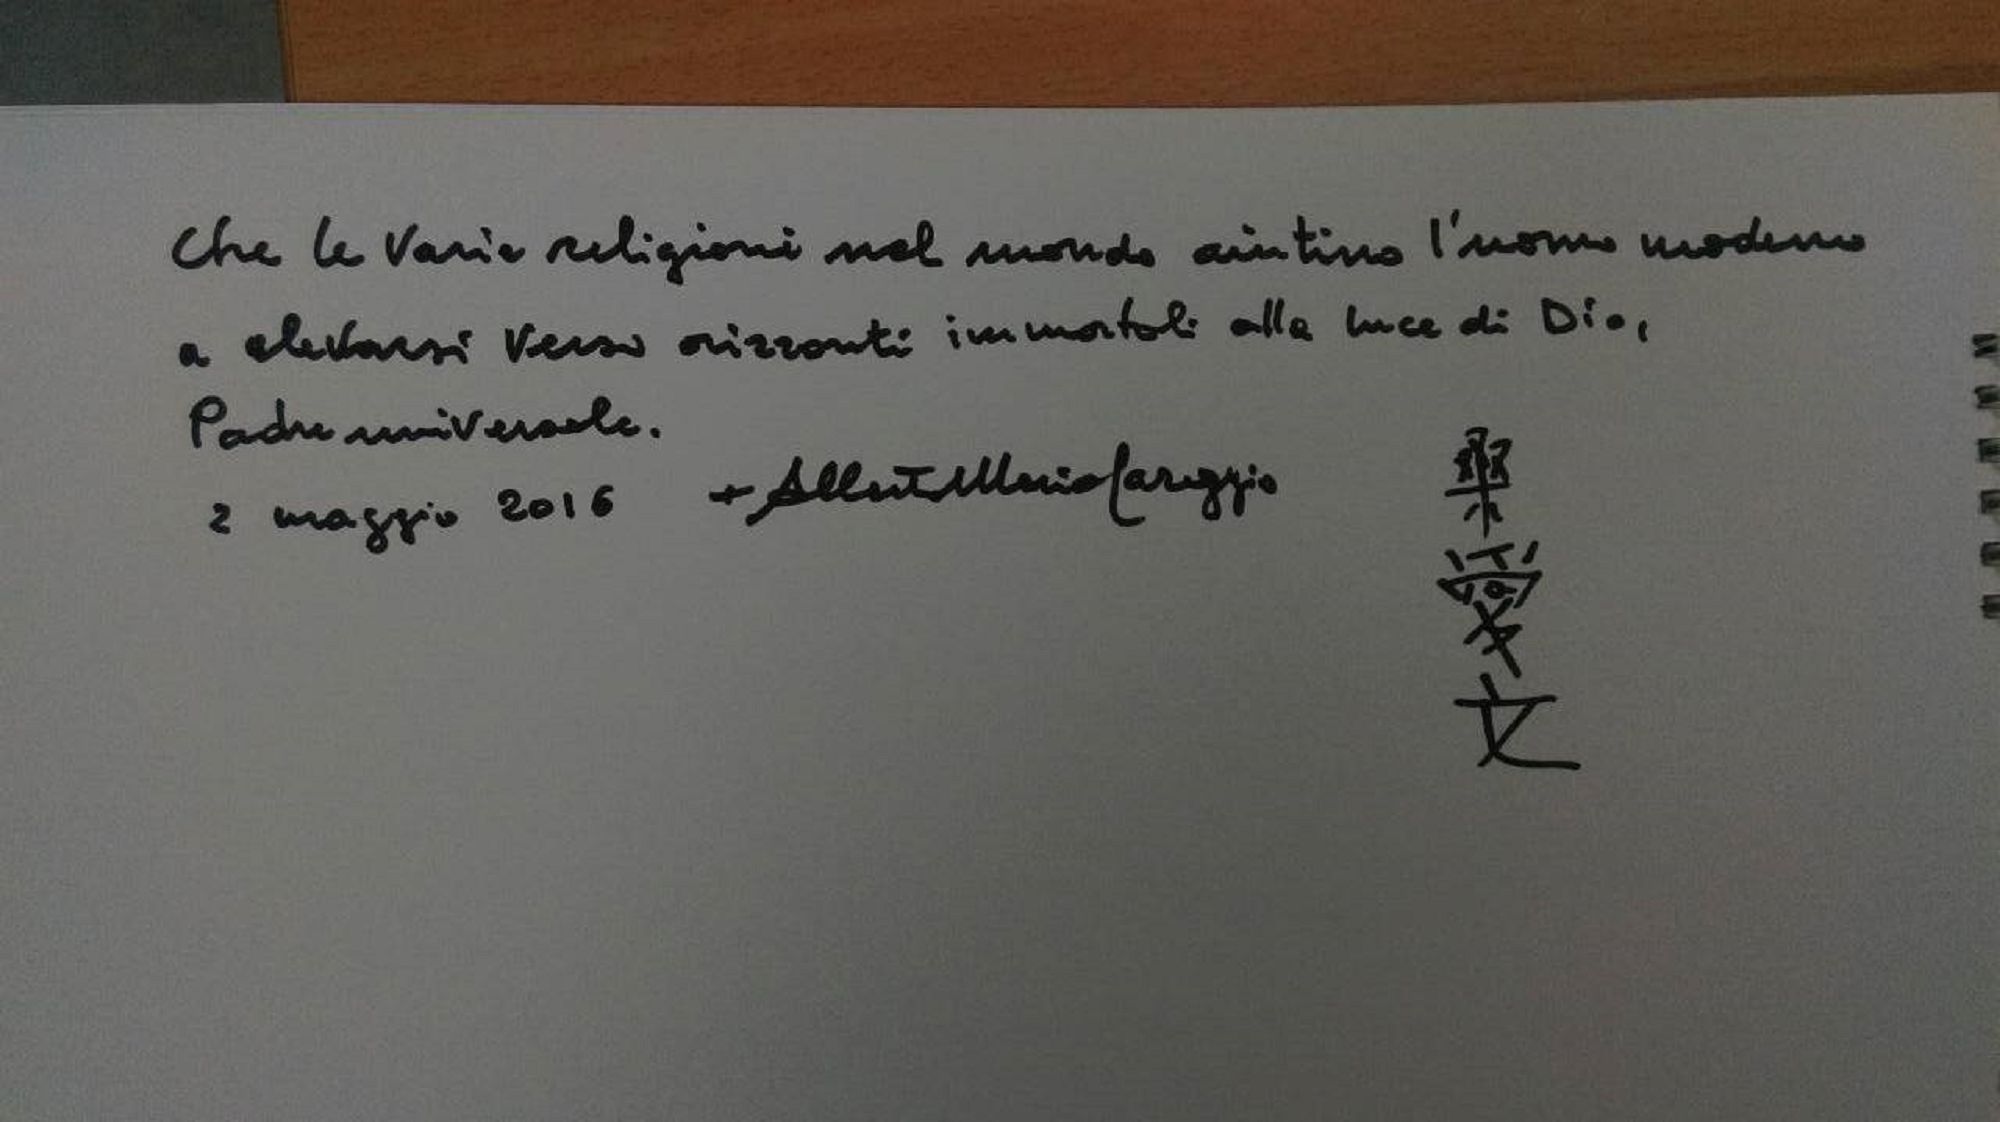 Che le varie religioni nel mondo aiutino l'uomo moderno
a elevarsi verso orizzonti immortali alla luce di Dio,
Padre universale.
2 maggio 2016 + Alberto Maria Careggio